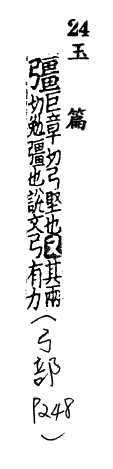 24
玉篇
彊
巨章切弓堅也又其兩
切勉彊也說文弓有力
(弓部 P248)